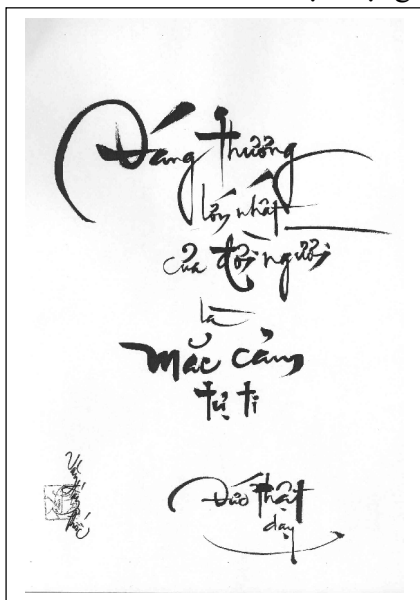 Đáng thương
lớn nhất
của đời người
là
mặc cảm
tự ti
Đức Phật
dạy